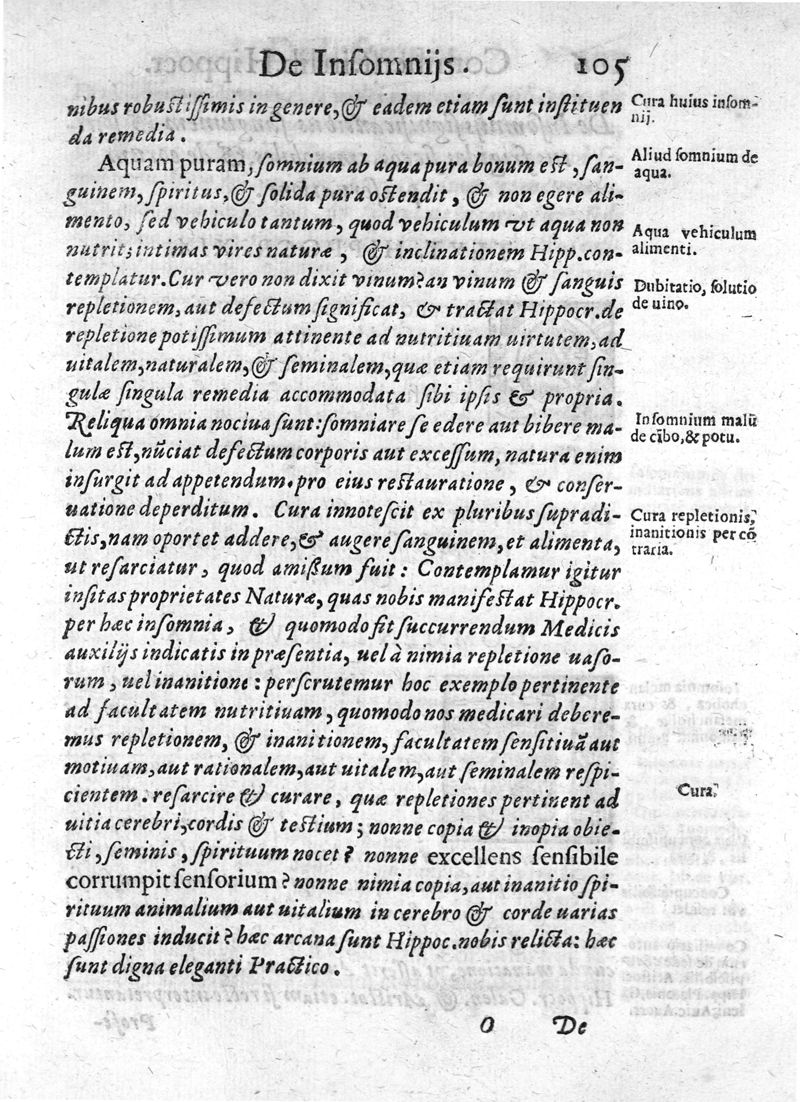 De Inſomnijs. 105
nibus robuſtiſſimis in genere, & eadem etiam ſunt inſtituen
da remedia.
Cura huius inſom-
nij.
Aquam puram, ſomnium ab aqua pura bonum eſt, ſan-
guinem, ſpiritus, & ſolida pura oſtendit, & non egere ali-
mento, ſed vehiculo tantum, quod vehiculum vt aqua non
nutrit; intimas vires naturæ, & inclinationem Hipp. con-
templatur. Cur vero non dixit vinum? an vinum & ſanguis
repletionem, aut defectum ſignificat, & tractat Hippocr. de
repletione potiſſimum attinente ad nutritiuam uirtutem, ad
uitalem, naturalem, & ſeminalem, quæ etiam requirunt ſin-
gulæ ſingula remedia accommodata ſibi ipſis & propria.
Aliud ſomnium de
aqua.
Aqua vehiculum
alimenti.
Dubitatio, ſolutio
de uino.
Reliqua omnia nociua ſunt: ſomniare ſe edere aut bibere ma-
lum eſt, nũciat defectum corporis aut exceſſum, natura enim
inſurgit ad appetendum. pro eius reſtauratione, & conſer-
uatione deperditum. Cura innoteſcit ex pluribus ſupradi-
ctis, nam oportet addere, & augere ſanguinem, et alimenta,
ut reſarciatur, quod amiſſum fuit: Contemplamur igitur
inſitas proprietates Naturæ, quas nobis manifeſtat Hippocr.
per hæc inſomnia, & quomodo ſit ſuccurrendum Medicis
auxilijs indicatis in præſentia, uel à nimia repletione uaſo-
rum, uel inanitione: perſcrutemur hoc exemplo pertinente
ad facultatem nutritiuam, quomodo nos medicari debere-
mus repletionem, & inanitionem, facultatem ſenſitiuã aut
motiuam, aut rationalem, aut uitalem, aut ſeminalem reſpi-
cientem. reſarcire & curare, quæ repletiones pertinent ad
uitia cerebri, cordis & teſtium; nonne copia & inopia obie-
cti, ſeminis, ſpirituum nocet? nonne excellens ſenſibile
corrumpit ſenſorium? nonne nimia copia, aut inanitio ſpi-
rituum animalium aut uitalium in cerebro & corde uarias
paſſiones inducit? hæc arcana ſunt Hippoc. nobis relicta: hæc
ſunt digna eleganti Practico.
Inſomnium malũ
de cibo, & potu.
Cura repletionis,
inanitionis per cõ
traria.
Cura.
O De